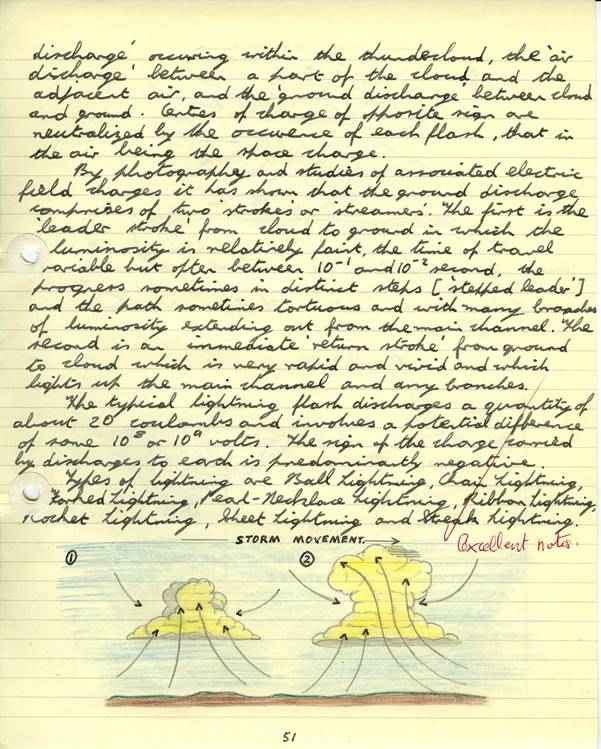 discharge' occuring within the thundercloud, the 'air
discharge' between a part of the cloud and the
adjacent air, and the 'ground discharge' between cloud
and ground. Centres of charge of opposite sign are
neutralized by the occurence of each flash, that in
the air being the space charge.
By photography and studies of associated electric
field charges it has shown that the ground discharge
comprises of two 'strokes' or 'streamers'. The first is the
'leader stroke' from cloud to ground in which the
luminosity is relatively faint, the time of travel
variable but often between 10⁻¹ and 10⁻² second, the
progress sometimes in distinct steps ['stepped leader']
and the path sometimes tortuous and with many branches
of luminosity extending out from the main channel. The
second is an immediate 'return stroke' from ground
to cloud which is very rapid and vivid and which
lights up the main channel and any branches.
The typical lightning flash discharges a quantity of
about 20 coulombs and involves a potential difference
of some 10⁸ or 10⁹ volts. The sign of the charge carried
by discharges to earth is predominantly negative.
Types of lightning are Ball Lightning, Chain Lightning,
Forked Lightning, Pearl-Necklace Lightning, Ribbon Lightning,
Rocket Lightning, Sheet Lightning and Streak Lightning.
STORM MOVEMENT.
Excellent notes.
① ②
51